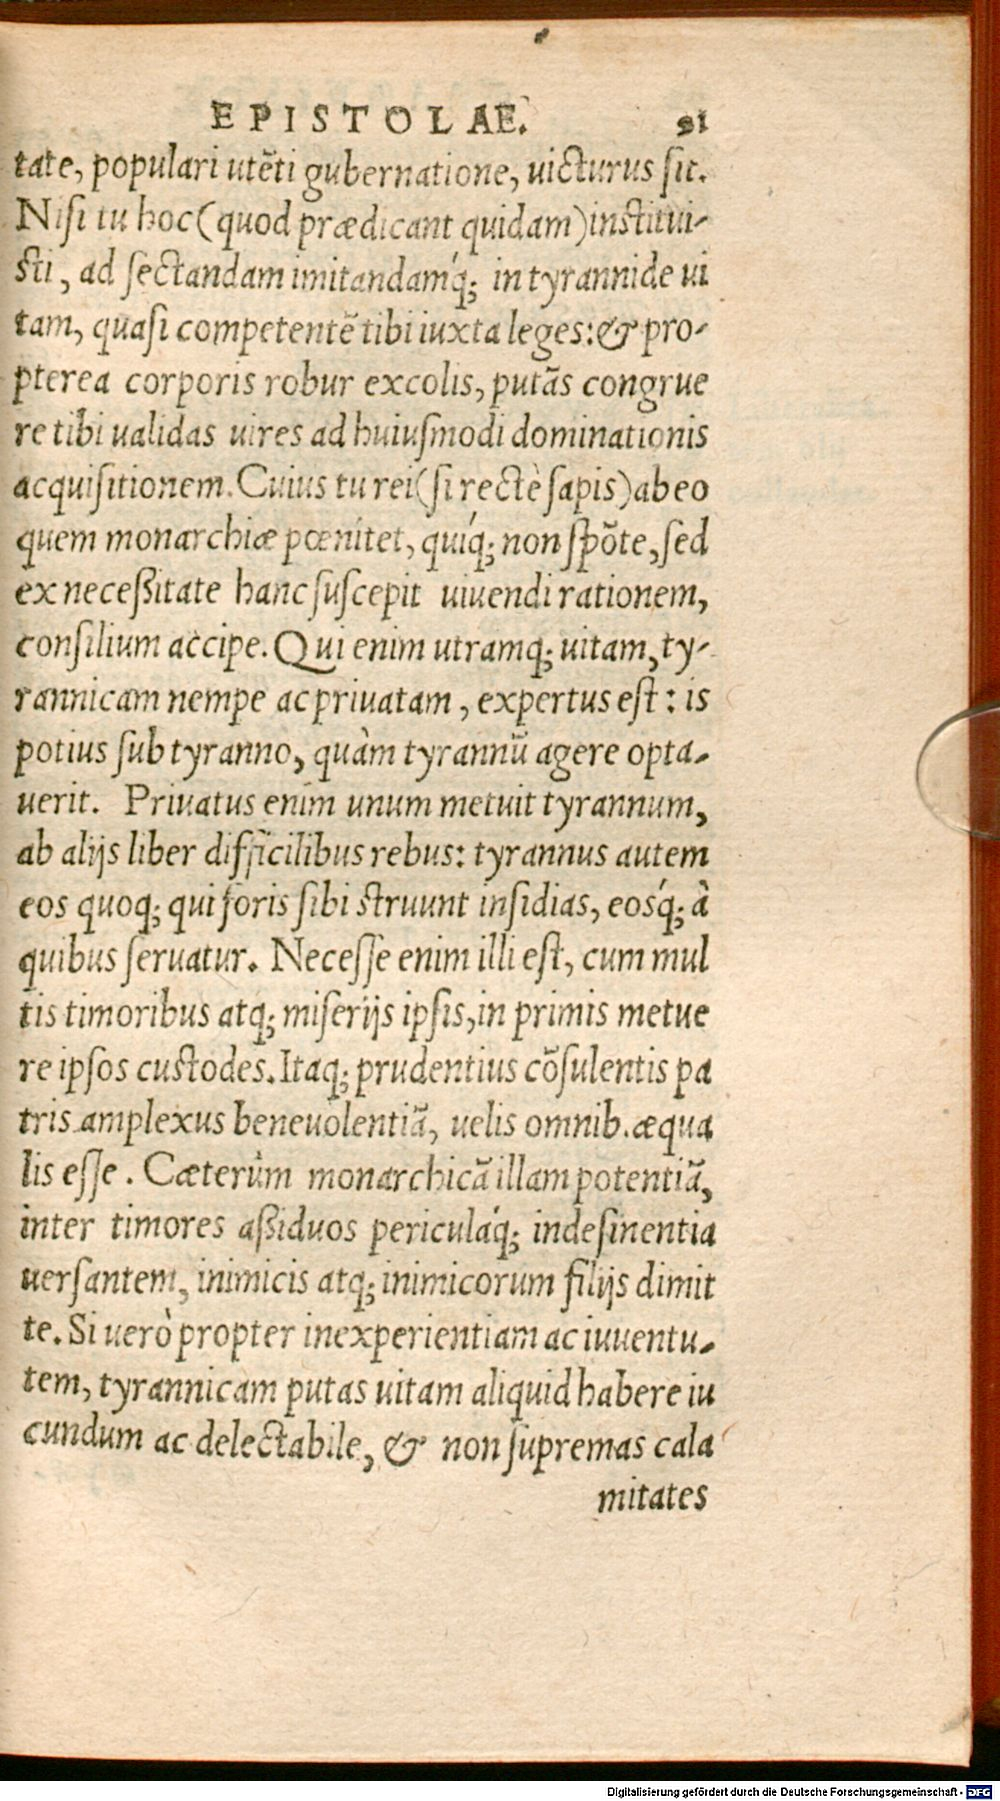 EPISTOLAE. 91
tate, populari utẽti gubernatione, uicturus sit.
Nisi tu hoc (quod prædicant quidam) institui-
sti, ad sectandam imitandamq́; in tyrannide ui
tam, quasi competentẽ tibi iuxta leges: & pro-
pterea corporis robur excolis, putãs congrue
re tibi ualidas uires ad huiusmodi dominationis
acquisitionem. Cuius tu rei (si rectè sapis) ab eo
quem monarchiæ pœnitet, quiq́; non spõte, sed
ex neceßitate hanc suscepit uiuendi rationem,
consilium accipe. Qui enim utramq; uitam, ty-
rannicam nempe ac priuatam, expertus est: is
potius sub tyranno, quàm tyrannũ agere opta-
uerit. Priuatus enim unum metuit tyrannum,
ab alijs liber difficilibus rebus: tyrannus autem
eos quoq; qui foris sibi struunt insidias, eosq́; à
quibus seruatur. Necesse enim illi est, cum mul
tis timoribus atq; miserijs ipsis, in primis metue
re ipsos custodes. Itaq; prudentius cõsulentis pa
tris amplexus beneuolentiã, uelis omnib. æqua
lis esse. Cæterùm monarchicã illam potentiã,
inter timores aßiduos periculaq́; indesinentia
uersantem, inimicis atq; inimicorum filijs dimit
te. Si uerò propter inexperientiam ac iuuentu-
tem, tyrannicam putas uitam aliquid habere iu
cundum ac delectabile, & non supremas cala
mitates
Digitalisierung gefördert durch die Deutsche Forschungsgemeinschaft - DFG